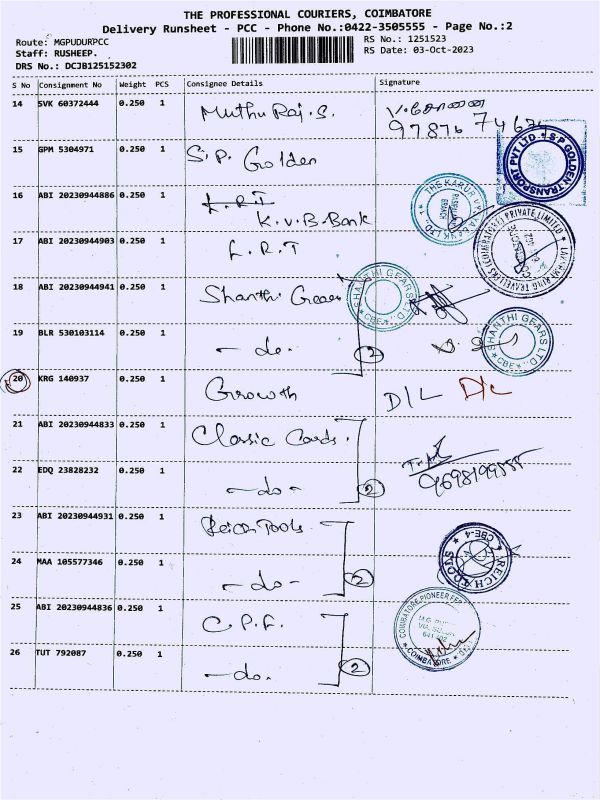 THE PROFESSIONAL COURIERS, COIMBATORE
Delivery Runsheet - PCC - Phone No.:0422-3505555 - Page No.:2
Route: MGPUDURPCC
RS No.: 1251523
Staff: RUSHEEP.
RS Date: 03-Oct-2023
DRS No.: DCJB125152302
S No Consignment No Weight PCS Consignee Details Signature
14 SVK 60372444 0.250 1 Muthu Raj. S.
15 GPM 5304971 0.250 1 S.P. Golden S.P GOLDEN TRANSPORT PVT LTD
16 ABI 20230944886 0.250 1 L.R.T
K.V.B. Bank THE KARUR
17 ABI 20230944903 0.250 1 L.R.T PRIVATE LIMITED
18 ABI 20230944941 0.250 1 Shanthi Gears SHANTHI GEARS LTD. CBE
19 BLR 530103114 0.250 1 - do. 2 SHANTHI GEARS LTD. CBE
20 KRG 140937 0.250 1 Growth D/L D/L
21 ABI 20230944833 0.250 1 Classic Cards.
22 EDQ 23828232 0.250 1 - do - 2
23 ABI 20230944931 0.250 1 Reich Tools REICH TOOLS CBE-4
24 MAA 105577346 0.250 1 - do - 2
25 ABI 20230944836 0.250 1 C.P.F. COIMBATORE PIONEER COIMBATORE
26 TUT 792087 0.250 1 - do. 2